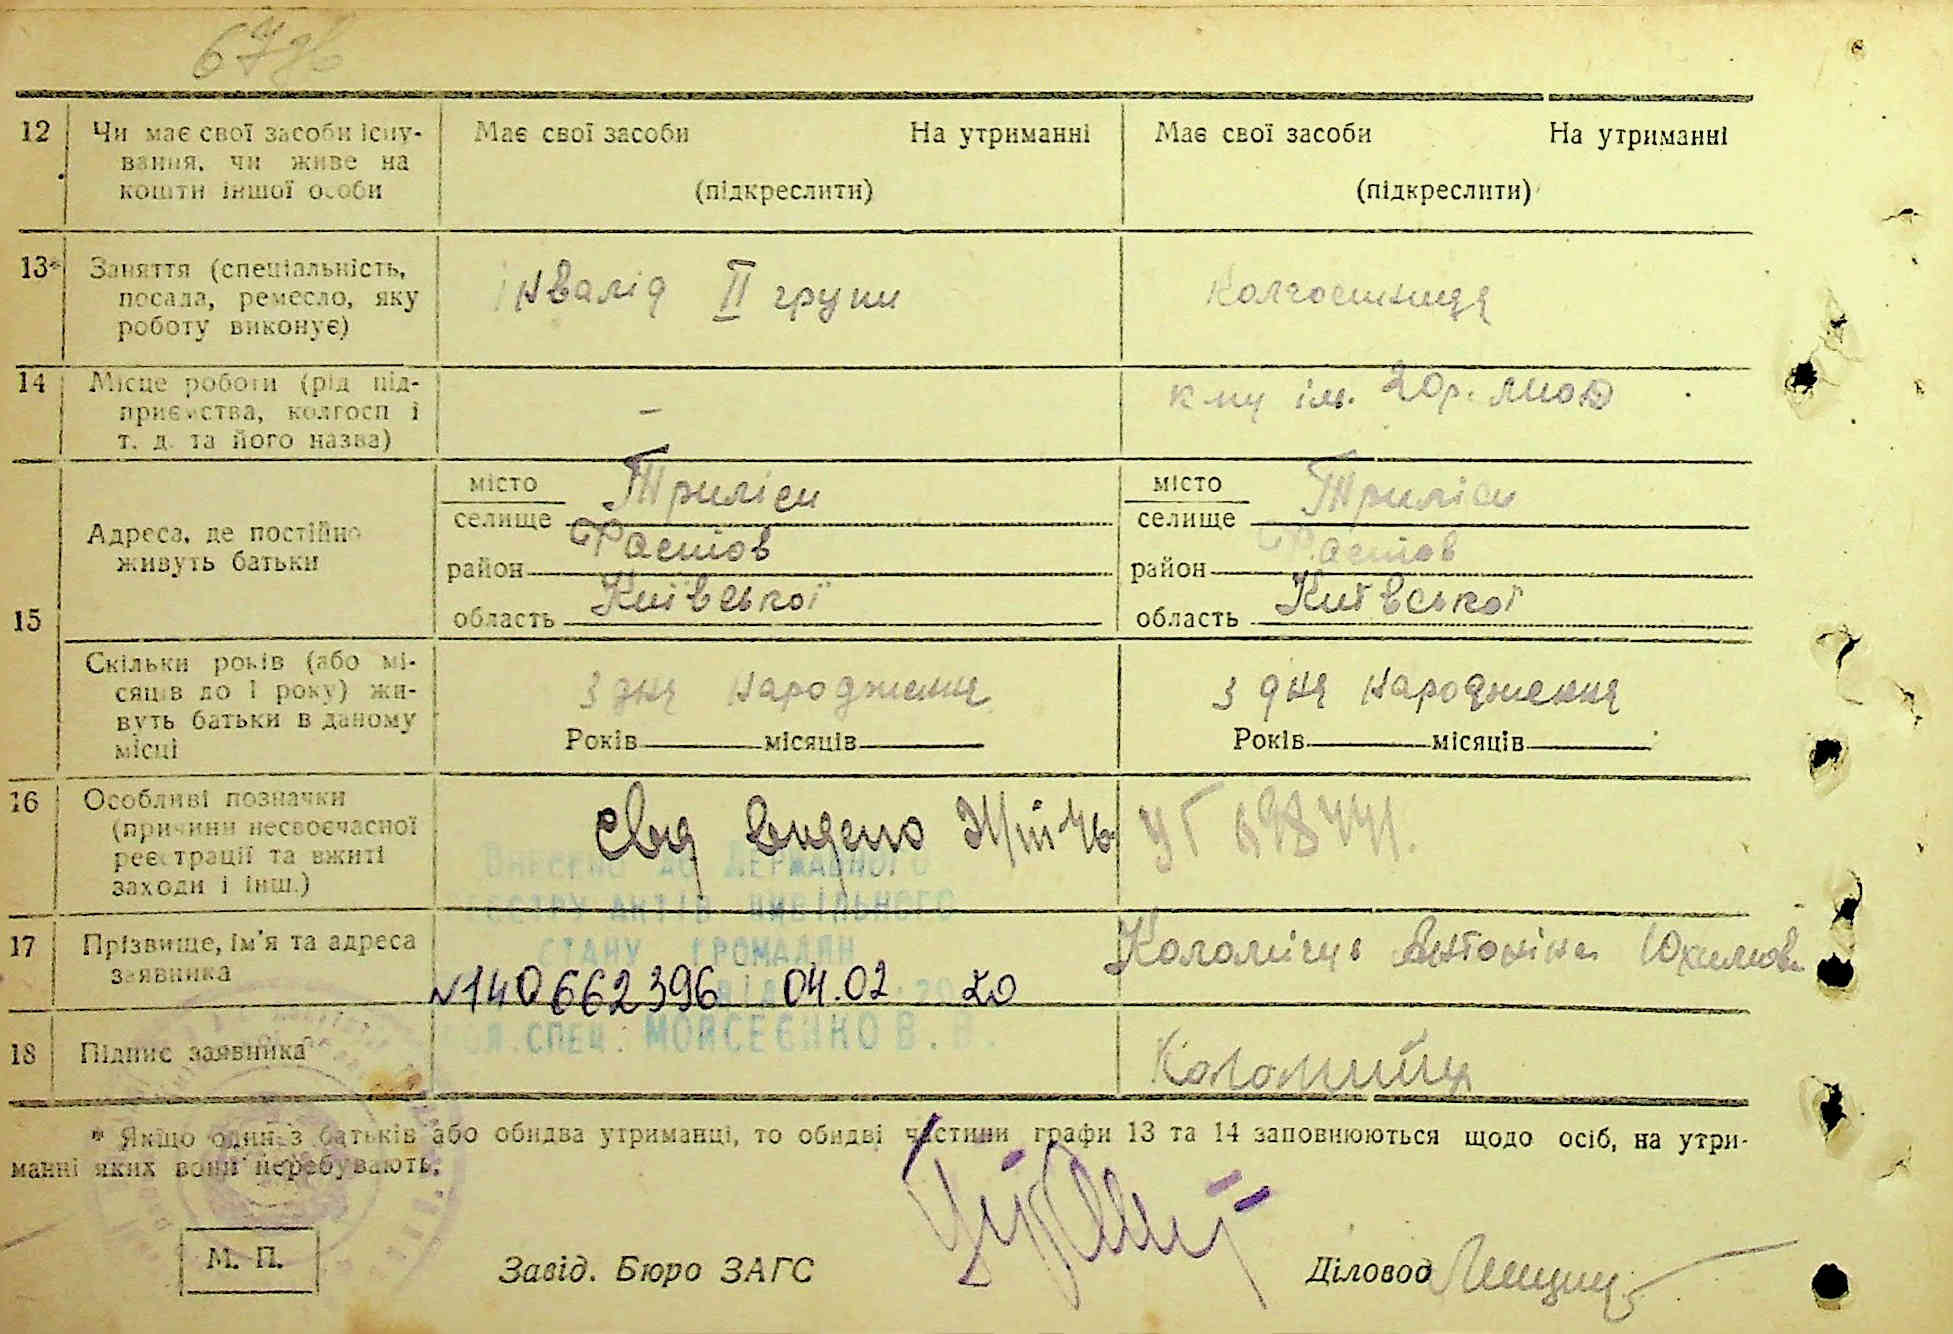 12 Чи має свої засоби існу-
вання, чи живе на
кошти іншої особи
Має свої засоби На утриманні
(підкреслити)
Має свої засоби На утриманні
(підкреслити)
13* Заняття (спеціальність,
посада, ремесло, яку
роботу виконує)
інвалід II групи
колгоспниця
14 Місце роботи (рід під-
приємства, колгосп і
т. д. та його назва)
–
ім. 20р.
15 Адреса, де постійно
живуть батьки
місто Триліси
селище
район Фастов
область Київської
місто Триліси
селище
район Фастов
область Київської
Скільки років (або мі-
сяців до 1 року) жи-
вуть батьки в даному
місці
з дня народження
Років місяців
з дня народження
Років місяців
16 Особливі позначки
(причини несвоєчасної
реєстрації та вжиті
заходи і інш.)
Внесено до Державного
реєстру актів цивільного
стану громадян
№140662396 від 04.02 2020
СПЕЦ. МОЙСЕЄНКО В. В.
17 Прізвище, ім'я та адреса
заявника
Антоніна Юхимов
18 Підпис заявника
* Якщо один з батьків або обидва утриманці, то обидві частини графи 13 та 14 заповнюються щодо осіб, на утри-
манні яких вони перебувають.
М. П.
Завід. Бюро ЗАГС
Діловод